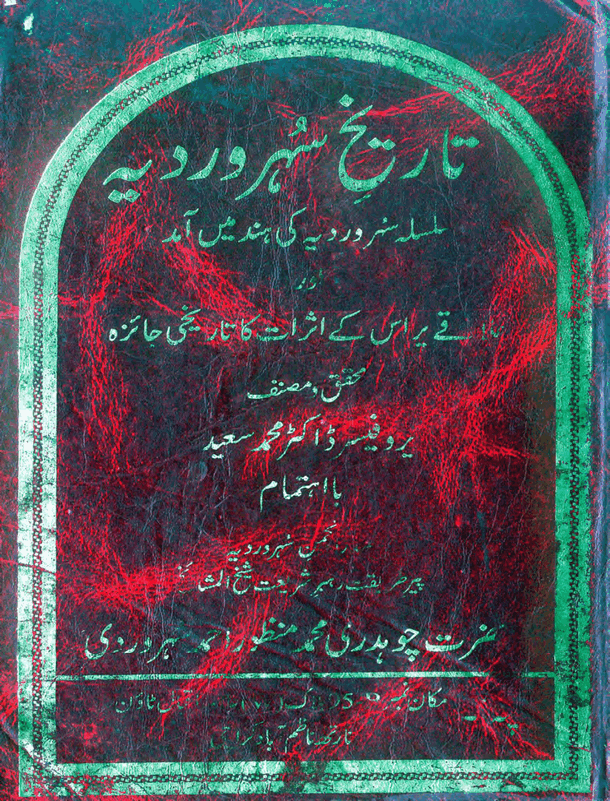 تاریخِ سُہروردیہ
سلسلہ سُہروردیہ کی ہند میں آمد
اور
علاقے پر اس کے اثرات کا تاریخی جائزہ
محقق، مصنف
پروفیسر ڈاکٹر محمد سعید
بااہتمام
انجمن سُہروردیہ
پیر طریقت رہبر شریعت شیخ المشائخ
حضرت چوہدری محمد منظور احمد سہروردی
مکان نمبر ٹاؤن
نارتھ ناظم آباد کراچی